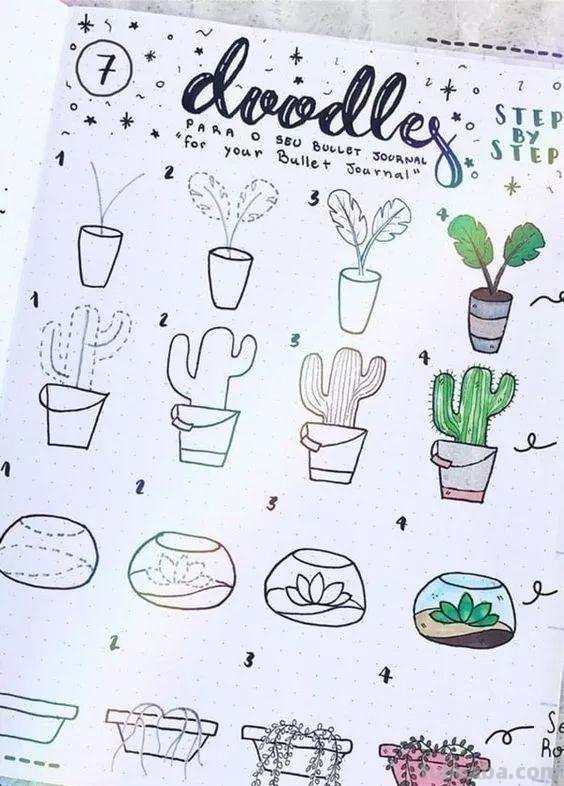 7
doodles
PARA O SEU BULLET JOURNAL
"for your Bullet Journal"
STEP
BY
STEP
1 2 3 4
1 2 3 4
1 2 3 4
2 3 4
Se
Ro